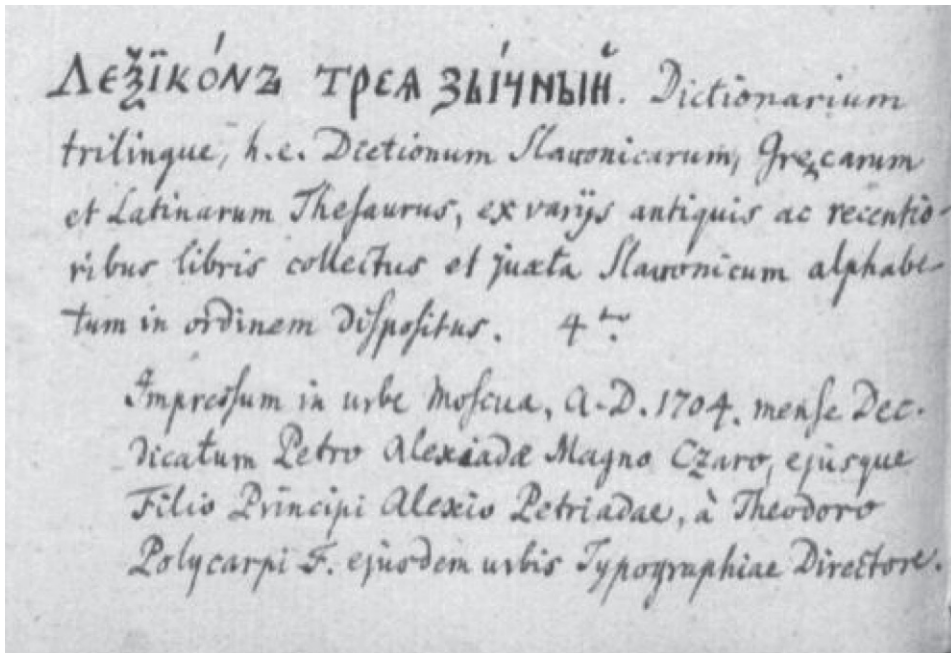 Леѯїко́нъ треѧзы́чный. Dictionarium
trilingue, h.e. Dictionum Slavonicarum, Grecarum
et Latinarum Thesaurus, ex varijs antiquis ac recentio
ribus libris collectus et juxta Slavonicum alphabe-
tum in ordinem dispositus. 4to.
Impressum in urbe Moscua, A.D. 1704. mense Dec.
Dicatum Petro Alexiadæ Magno Czaro, ejusque
Filio Principi Alexio Petriadae, à Theodoro
Polycarpi F. ejusdem urbis Typographiae Directore.